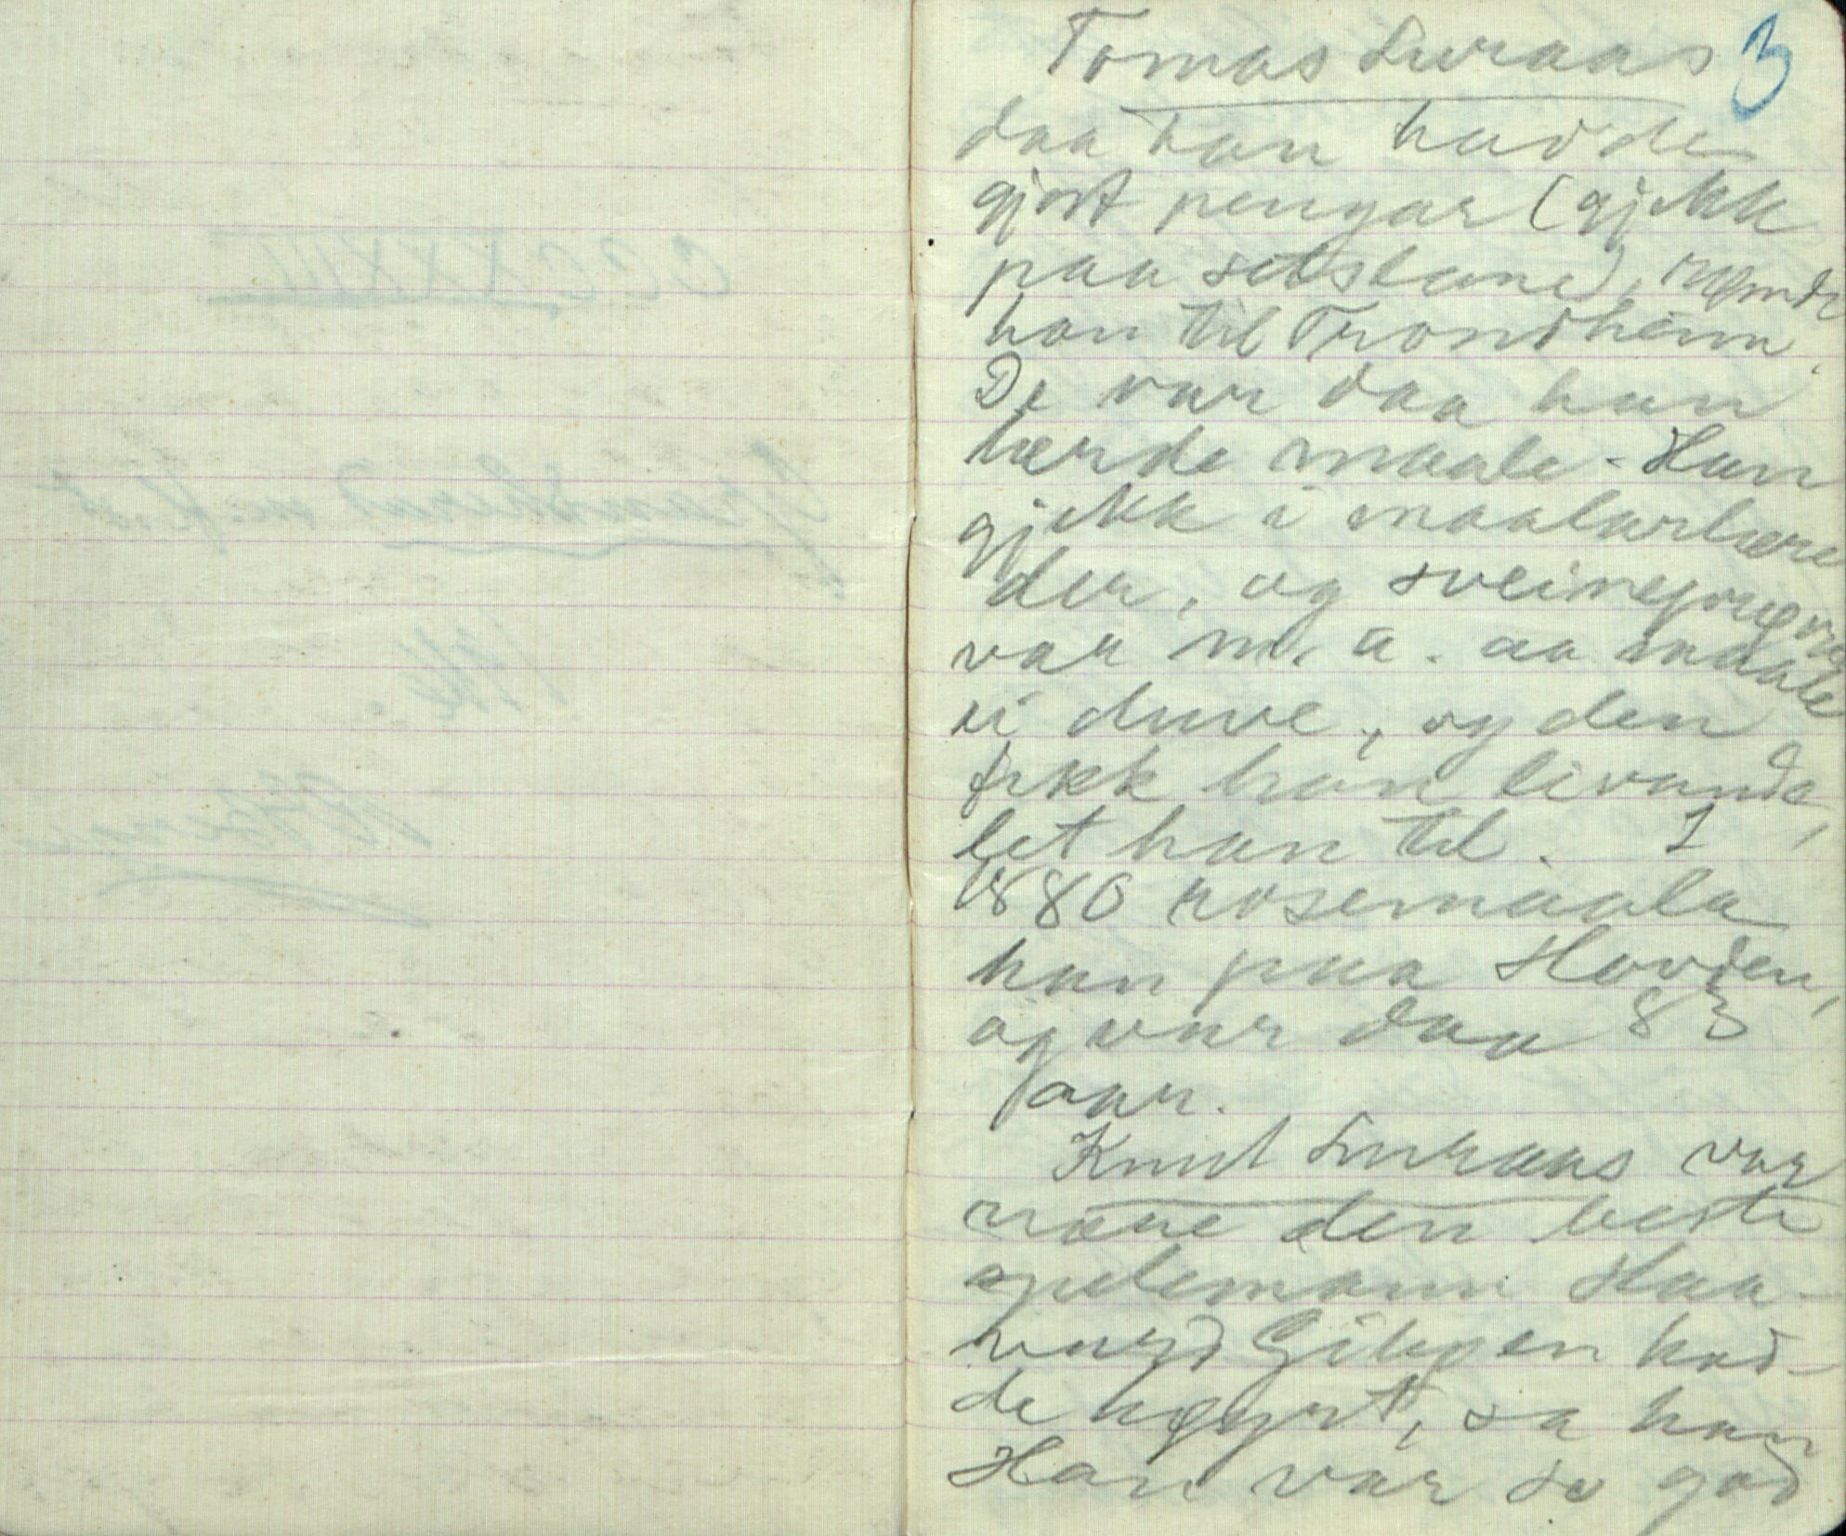 3
Tomas Luraas
daa han hadde
gjort pengar (gjekk
paa setstane), rømde
han til Trondheim.
De var daa han
lærde maale. Han
gjekk i maalarlære
der, og sveineprøva
var m. a. aa maale
ei duve, og den
fekk han livande,
let han til. I
1880 rosemaala
han paa Hovden,
og var daa 83
aar.
Knut Luraas var
den beste
spelemann Haa-
vard Gibøen had-
de høyrt, sa han
Han var so god